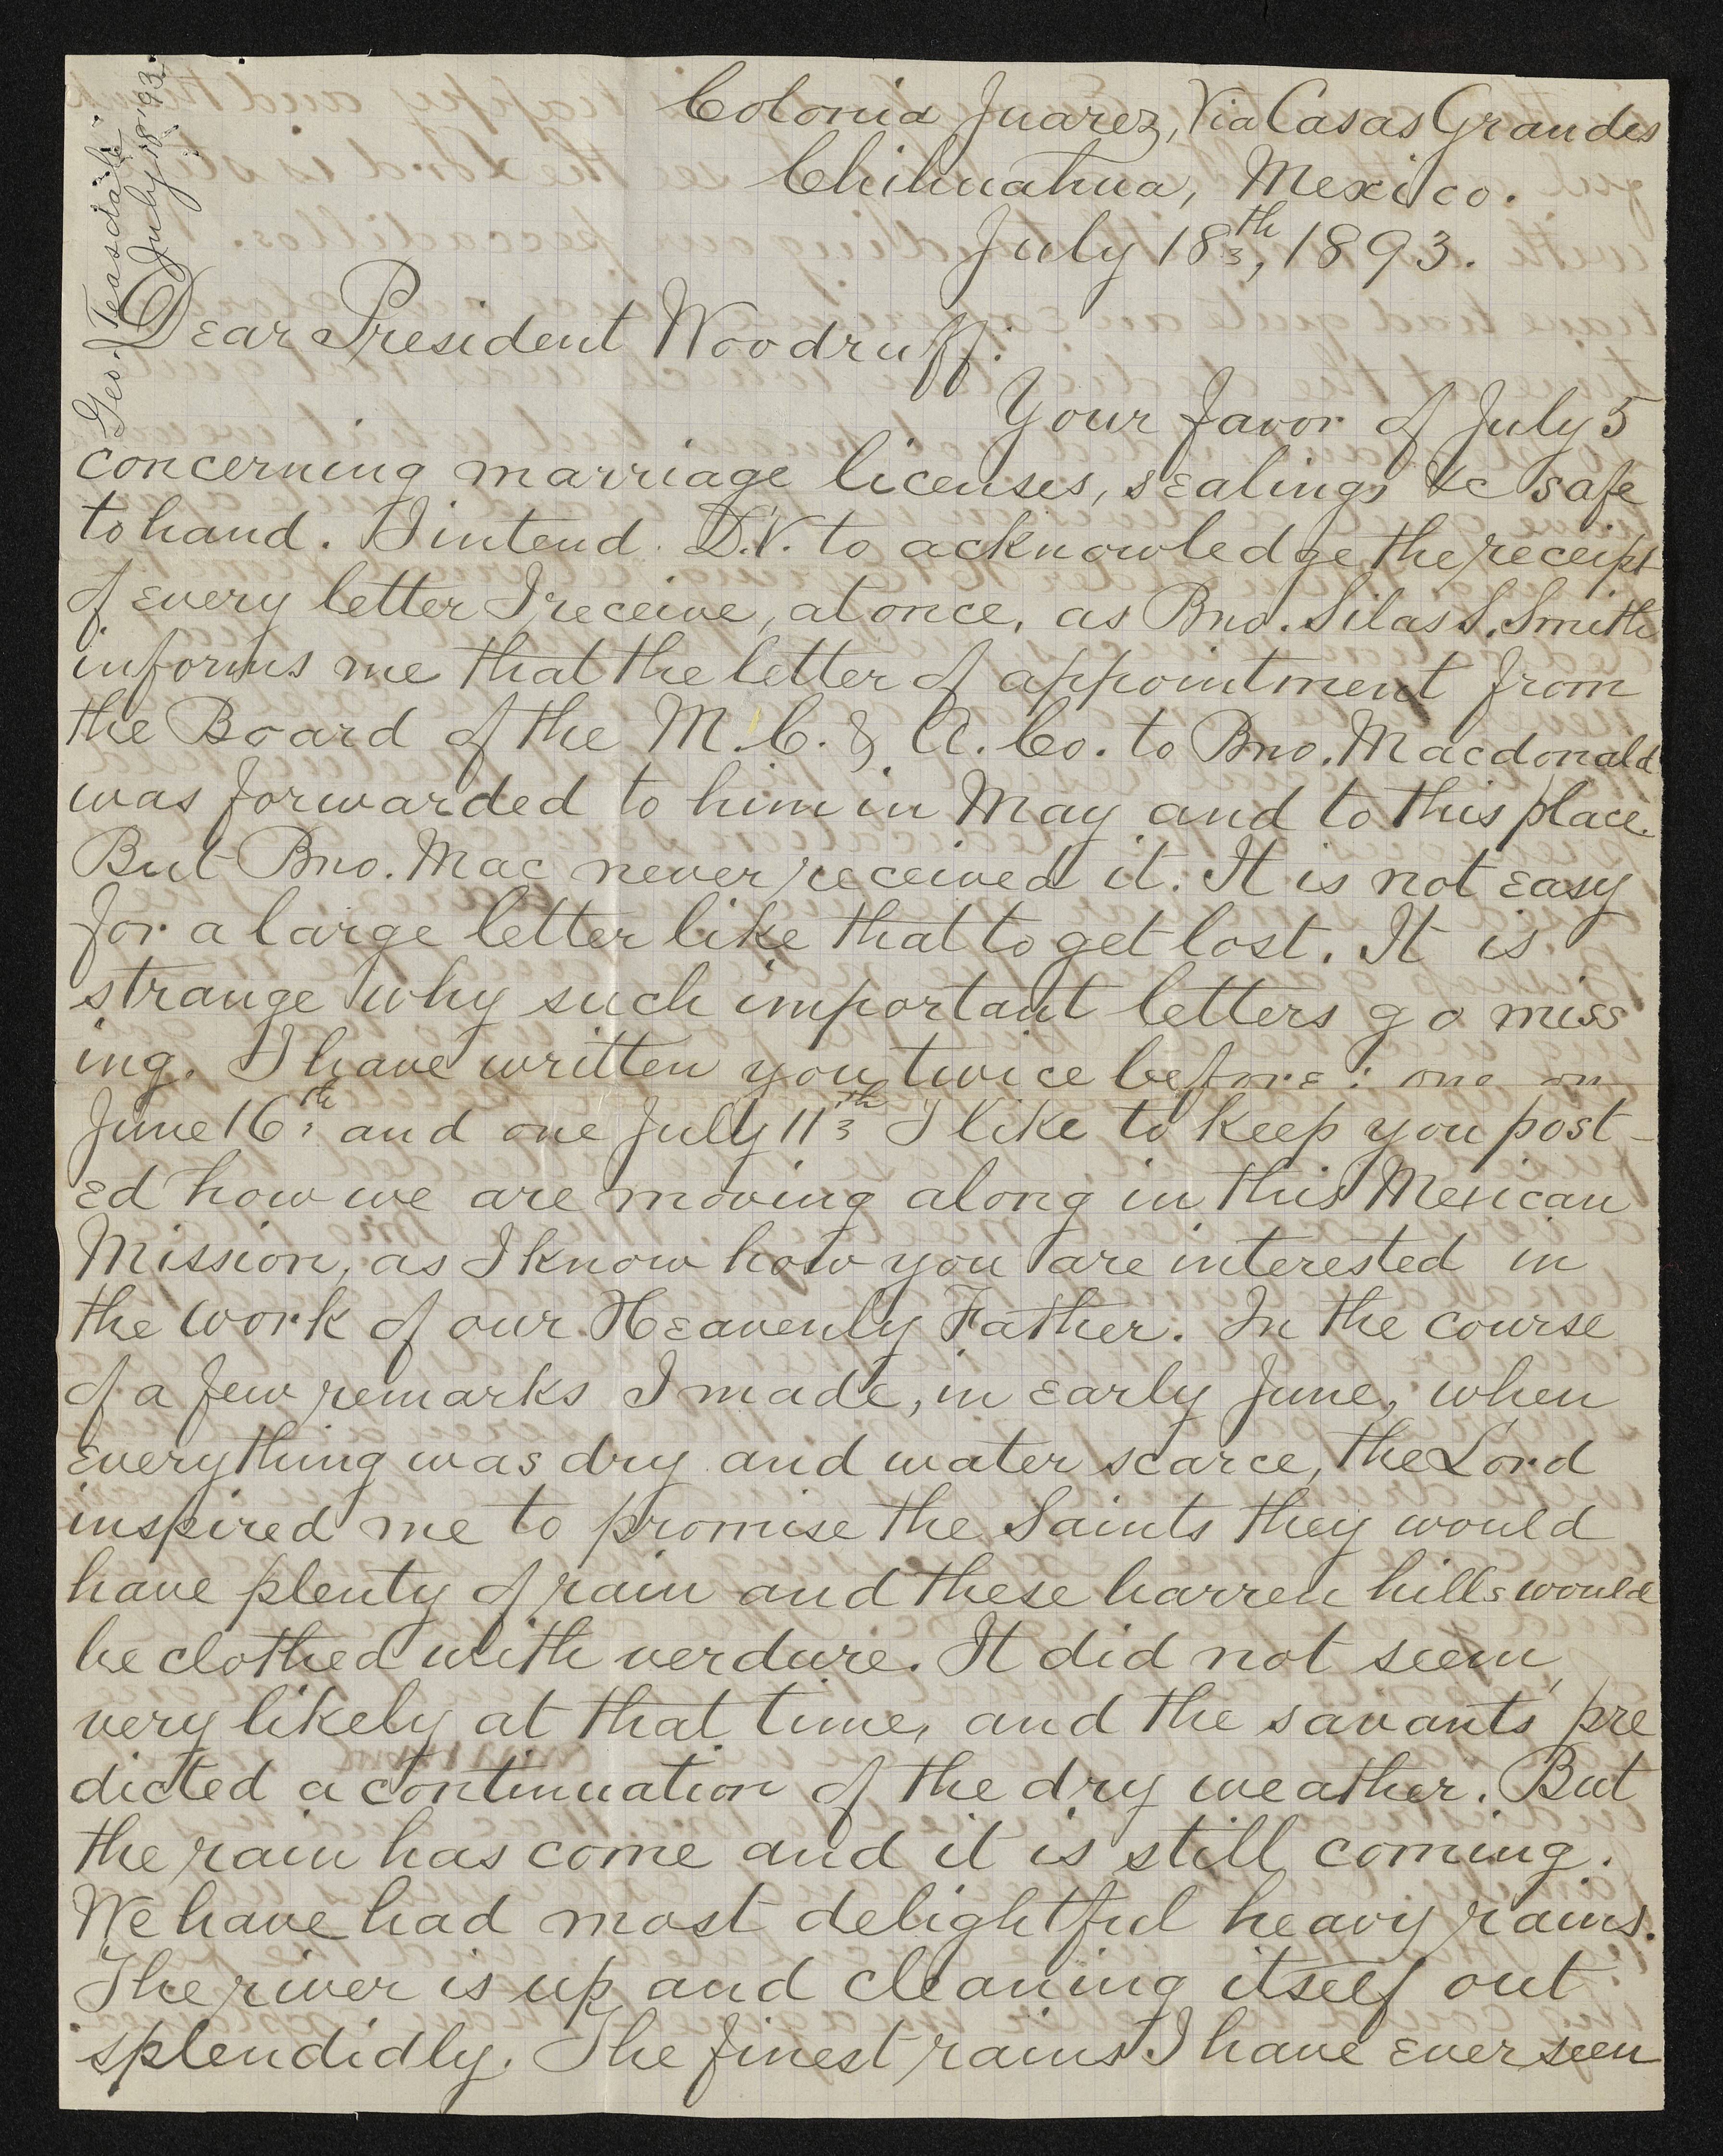 Geo. Teasdale
July 18 '93.
Colonia Juarez, Via Casas Grandes
Chihuahua, Mexico.
July 18th, 1893.
Dear President Woodruff:
Your favor of July 5
concerning marriage licenses, sealings &c safe
to hand. I intend D.V. to acknowledge the receipt
of every letter I receive, at once, as Bro. Silas S. Smith
informs me that the letter of appointment from
the Board of the M. C. & A. Co. to Bro. Macdonald
was forwarded to him in May and to this place.
But Bro. Mac never received it. It is not easy
for a large letter like that to get lost. It is
strange why such important letters go miss
ing. I have written you twice before: one on
June 16th and one July 11th I like to keep you post-
ed how we are moving along in this Mexican
Mission, as I know how you are interested in
the work of our Heavenly Father. In the course
of a few remarks I made, in early June, when
everything was dry and water scarce, the Lord
inspired me to promise the Saints they would
have plenty of rain and these barren hills would
be clothed with verdure. It did not seem
very likely at that time, and the savants pre
dicted a continuation of the dry weather. But
the rain has come and it is still coming.
We have had most delightful heavy rains.
The river is up and cleaning itself out
splendidly. The finest rains I have ever seen